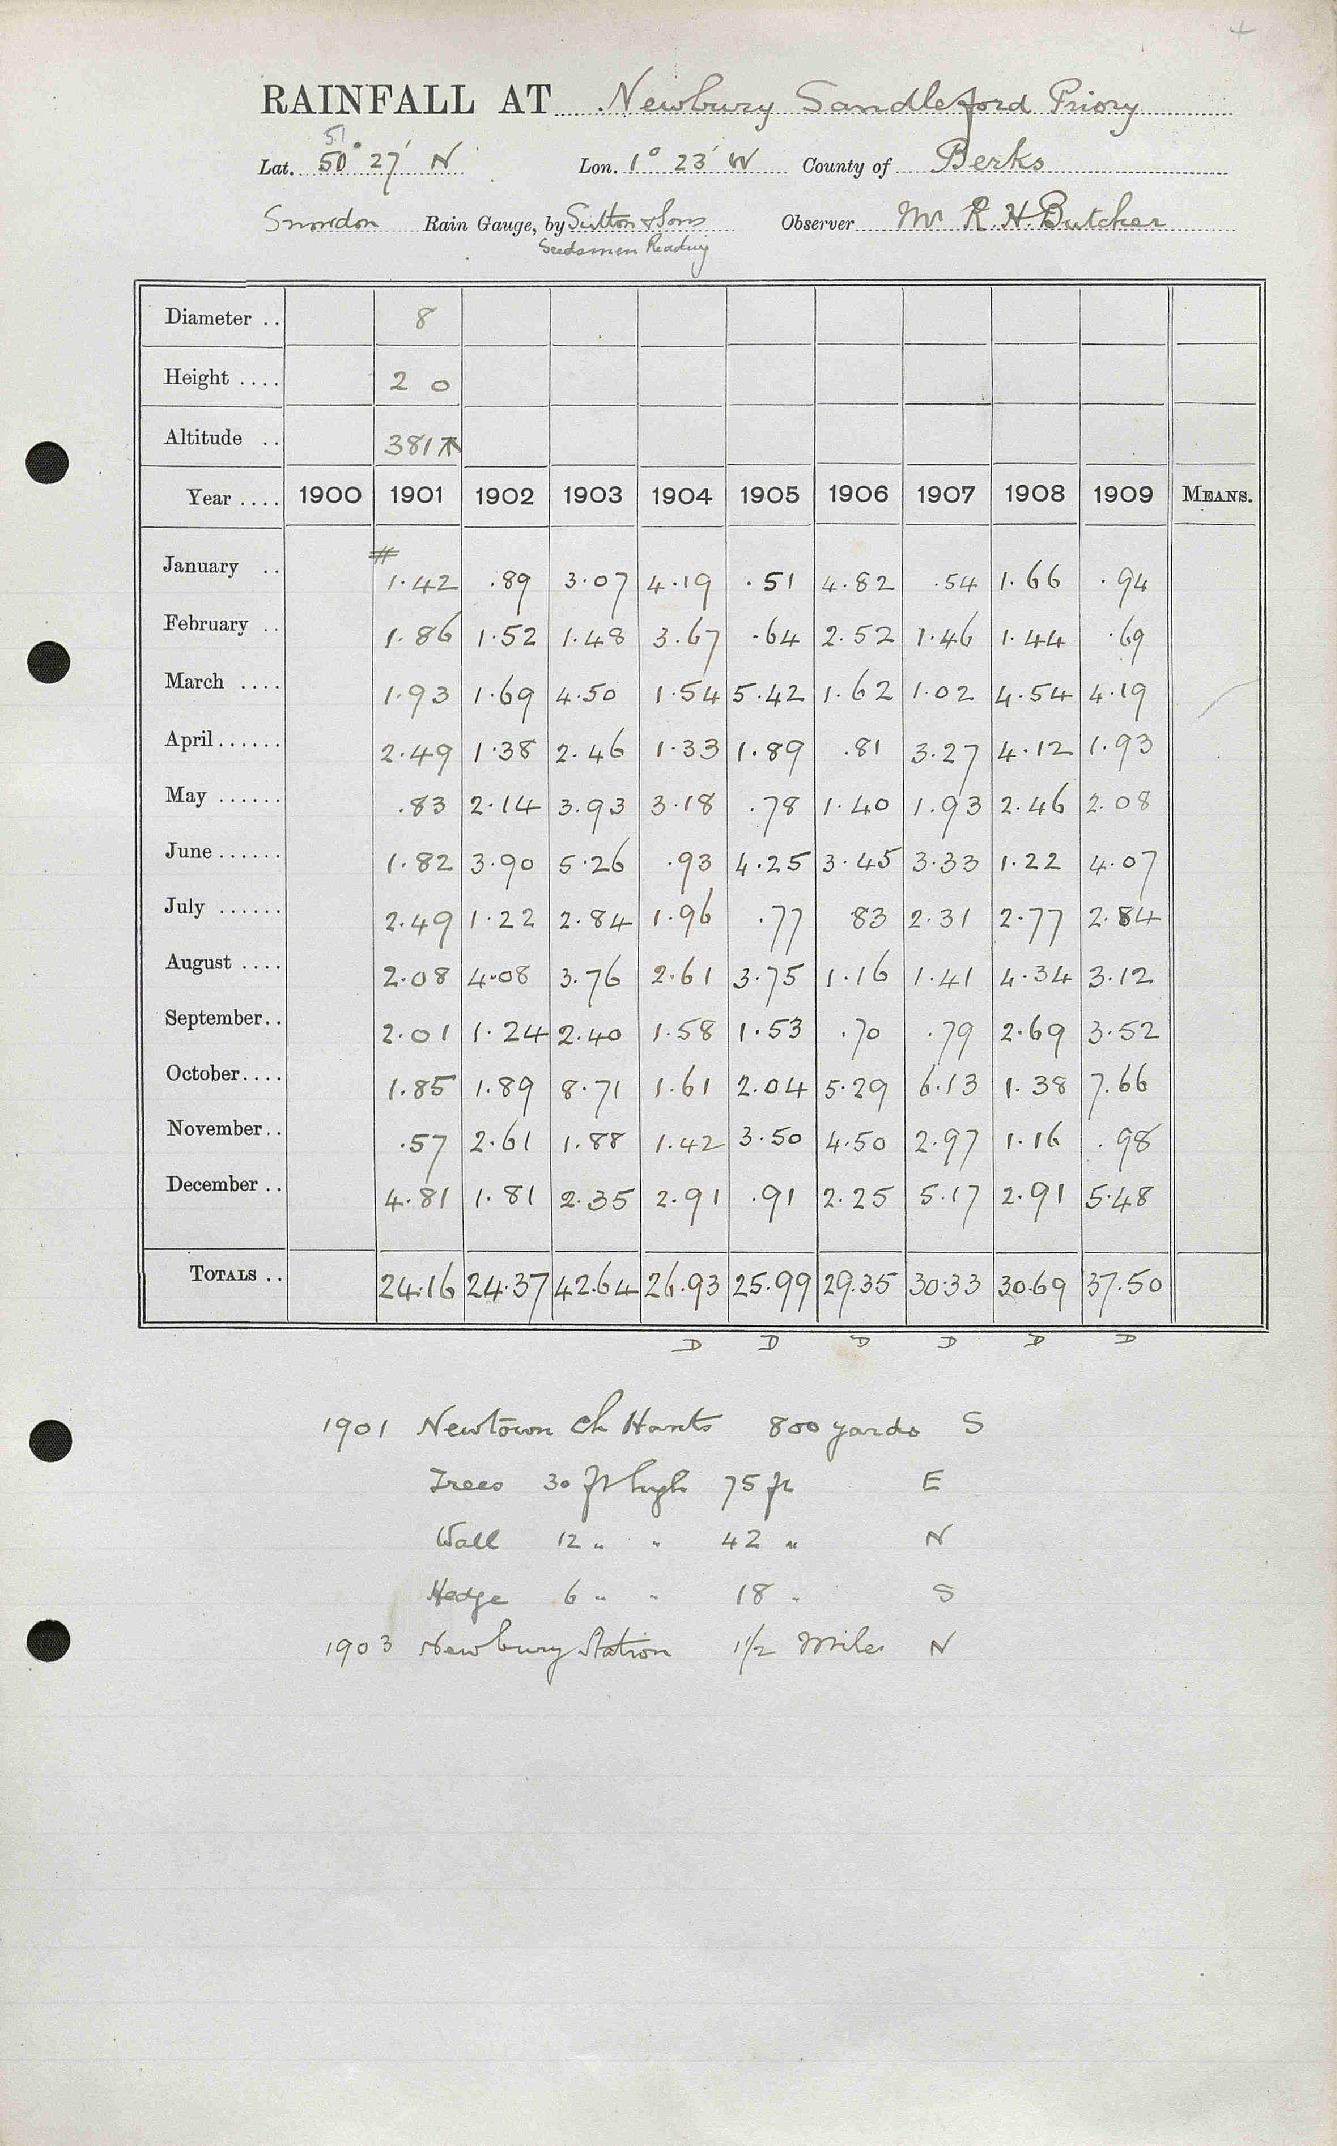 RAINFALL AT Newbury Sandleford Priory
51
Lat. 50° 27' N Lon. 1° 23' W County of Berks
Snowdon Rain Gauge, by Sutton & Sons Observer Mr R. H. Butcher
Seedsmen Reading
Diameter .. 8
Height .... 2 0
Altitude .. 381
Year .... 1900 1901 1902 1903 1904 1905 1906 1907 1908 1909 MEANS.
January .. 1.42 .89 3.07 4.19 .51 4.82 .54 1.66 .94
February .. 1.86 1.52 1.48 3.67 .64 2.52 1.46 1.44 .69
March .... 1.93 1.69 4.50 1.54 5.42 1.62 1.02 4.54 4.19
April ...... 2.49 1.38 2.46 1.33 1.89 .81 3.27 4.12 1.93
May ...... .83 2.14 3.93 3.18 .78 1.40 1.93 2.46 2.08
June ...... 1.82 3.90 5.26 .93 4.25 3.45 3.33 1.22 4.07
July ...... 2.49 1.22 2.84 1.96 .77 83 2.31 2.77 2.84
August .... 2.08 4.08 3.76 2.61 3.75 1.16 1.41 4.34 3.12
September .. 2.01 1.24 2.40 1.58 1.53 .70 .79 2.69 3.52
October .... 1.85 1.89 8.71 1.61 2.04 5.29 6.13 1.38 7.66
November .. .57 2.61 1.88 1.42 3.50 4.50 2.97 1.16 .98
December .. 4.81 1.81 2.35 2.91 .91 2.25 5.17 2.91 5.48
TOTALS .. 24.16 24.37 42.64 26.93 25.99 29.35 30.33 30.69 37.50
D D D D D D
1901 Newtown Ch Hants 800 yards S
Trees 30 ft high 75 ft E
Wall 12 " " 42 " N
Hedge 6 " " 18 " S
1903 Newbury Station 1 1/2 Miles N